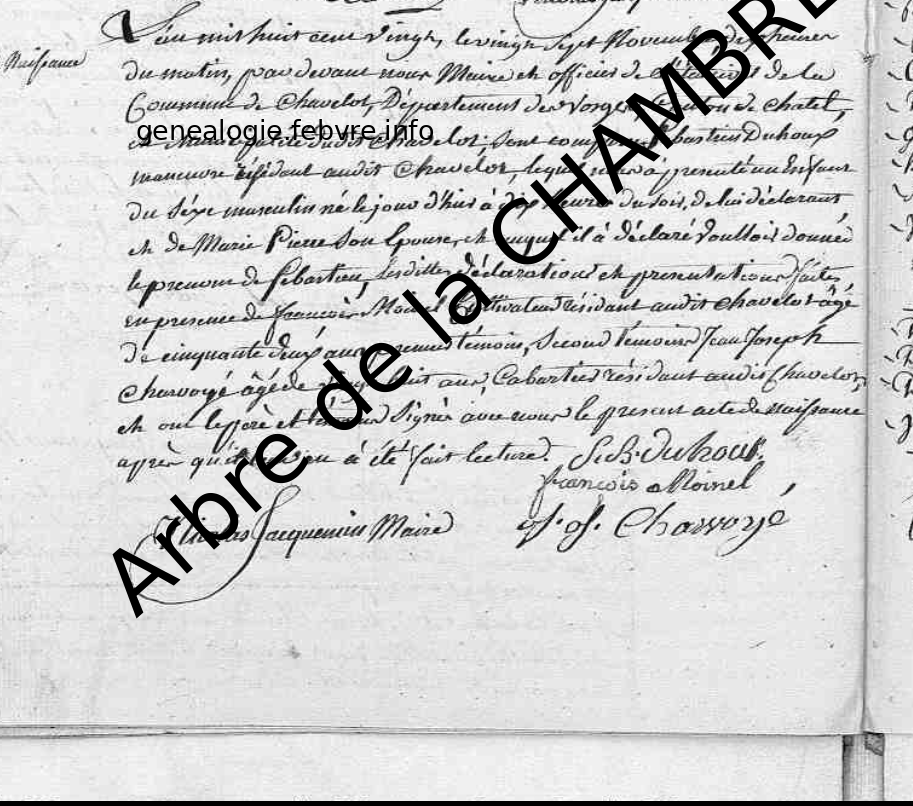 L'an mil huit cent vingt, le vingt Sept Novembre dix heures
Naissance
du matin, par devant nous Maire et officier de l'état civil de la
Commune de Chavelot, Département des Vosges, Canton de Chatel,
genealogie.febvre.info
et Municipalité dudit Chavelot; sont comparu Sébastien Duhoux
manœuvre résidant audit Chavelot, lequel nous à presenté un Enfant
du Séxe masculin né le jour d'hier à dix heures du soir, de lui déclarant
et de Marie Pierre Son Epouse, et auquel il à déclaré voulloir donner
le prenom de Sebastien, lesdittes déclarations et presentations faites
en presence de françois Moinel Cultivateur résidant audit Chavelot âgé
de cinquante deux ans premier témoin, Second témoins Jean Joseph
Charroyé âgé de vingt huit ans, Cabartier résidant audit Chavelot,
et ont le père et témoins Signés avec nous le present acte de naissance
après qu'il leur en à été fait lecture.
S.B. duhoux.
françois Moinel
Nicolas Jacquemin Maire
J. J. Charroyé
Arbre de la CHAMBRE